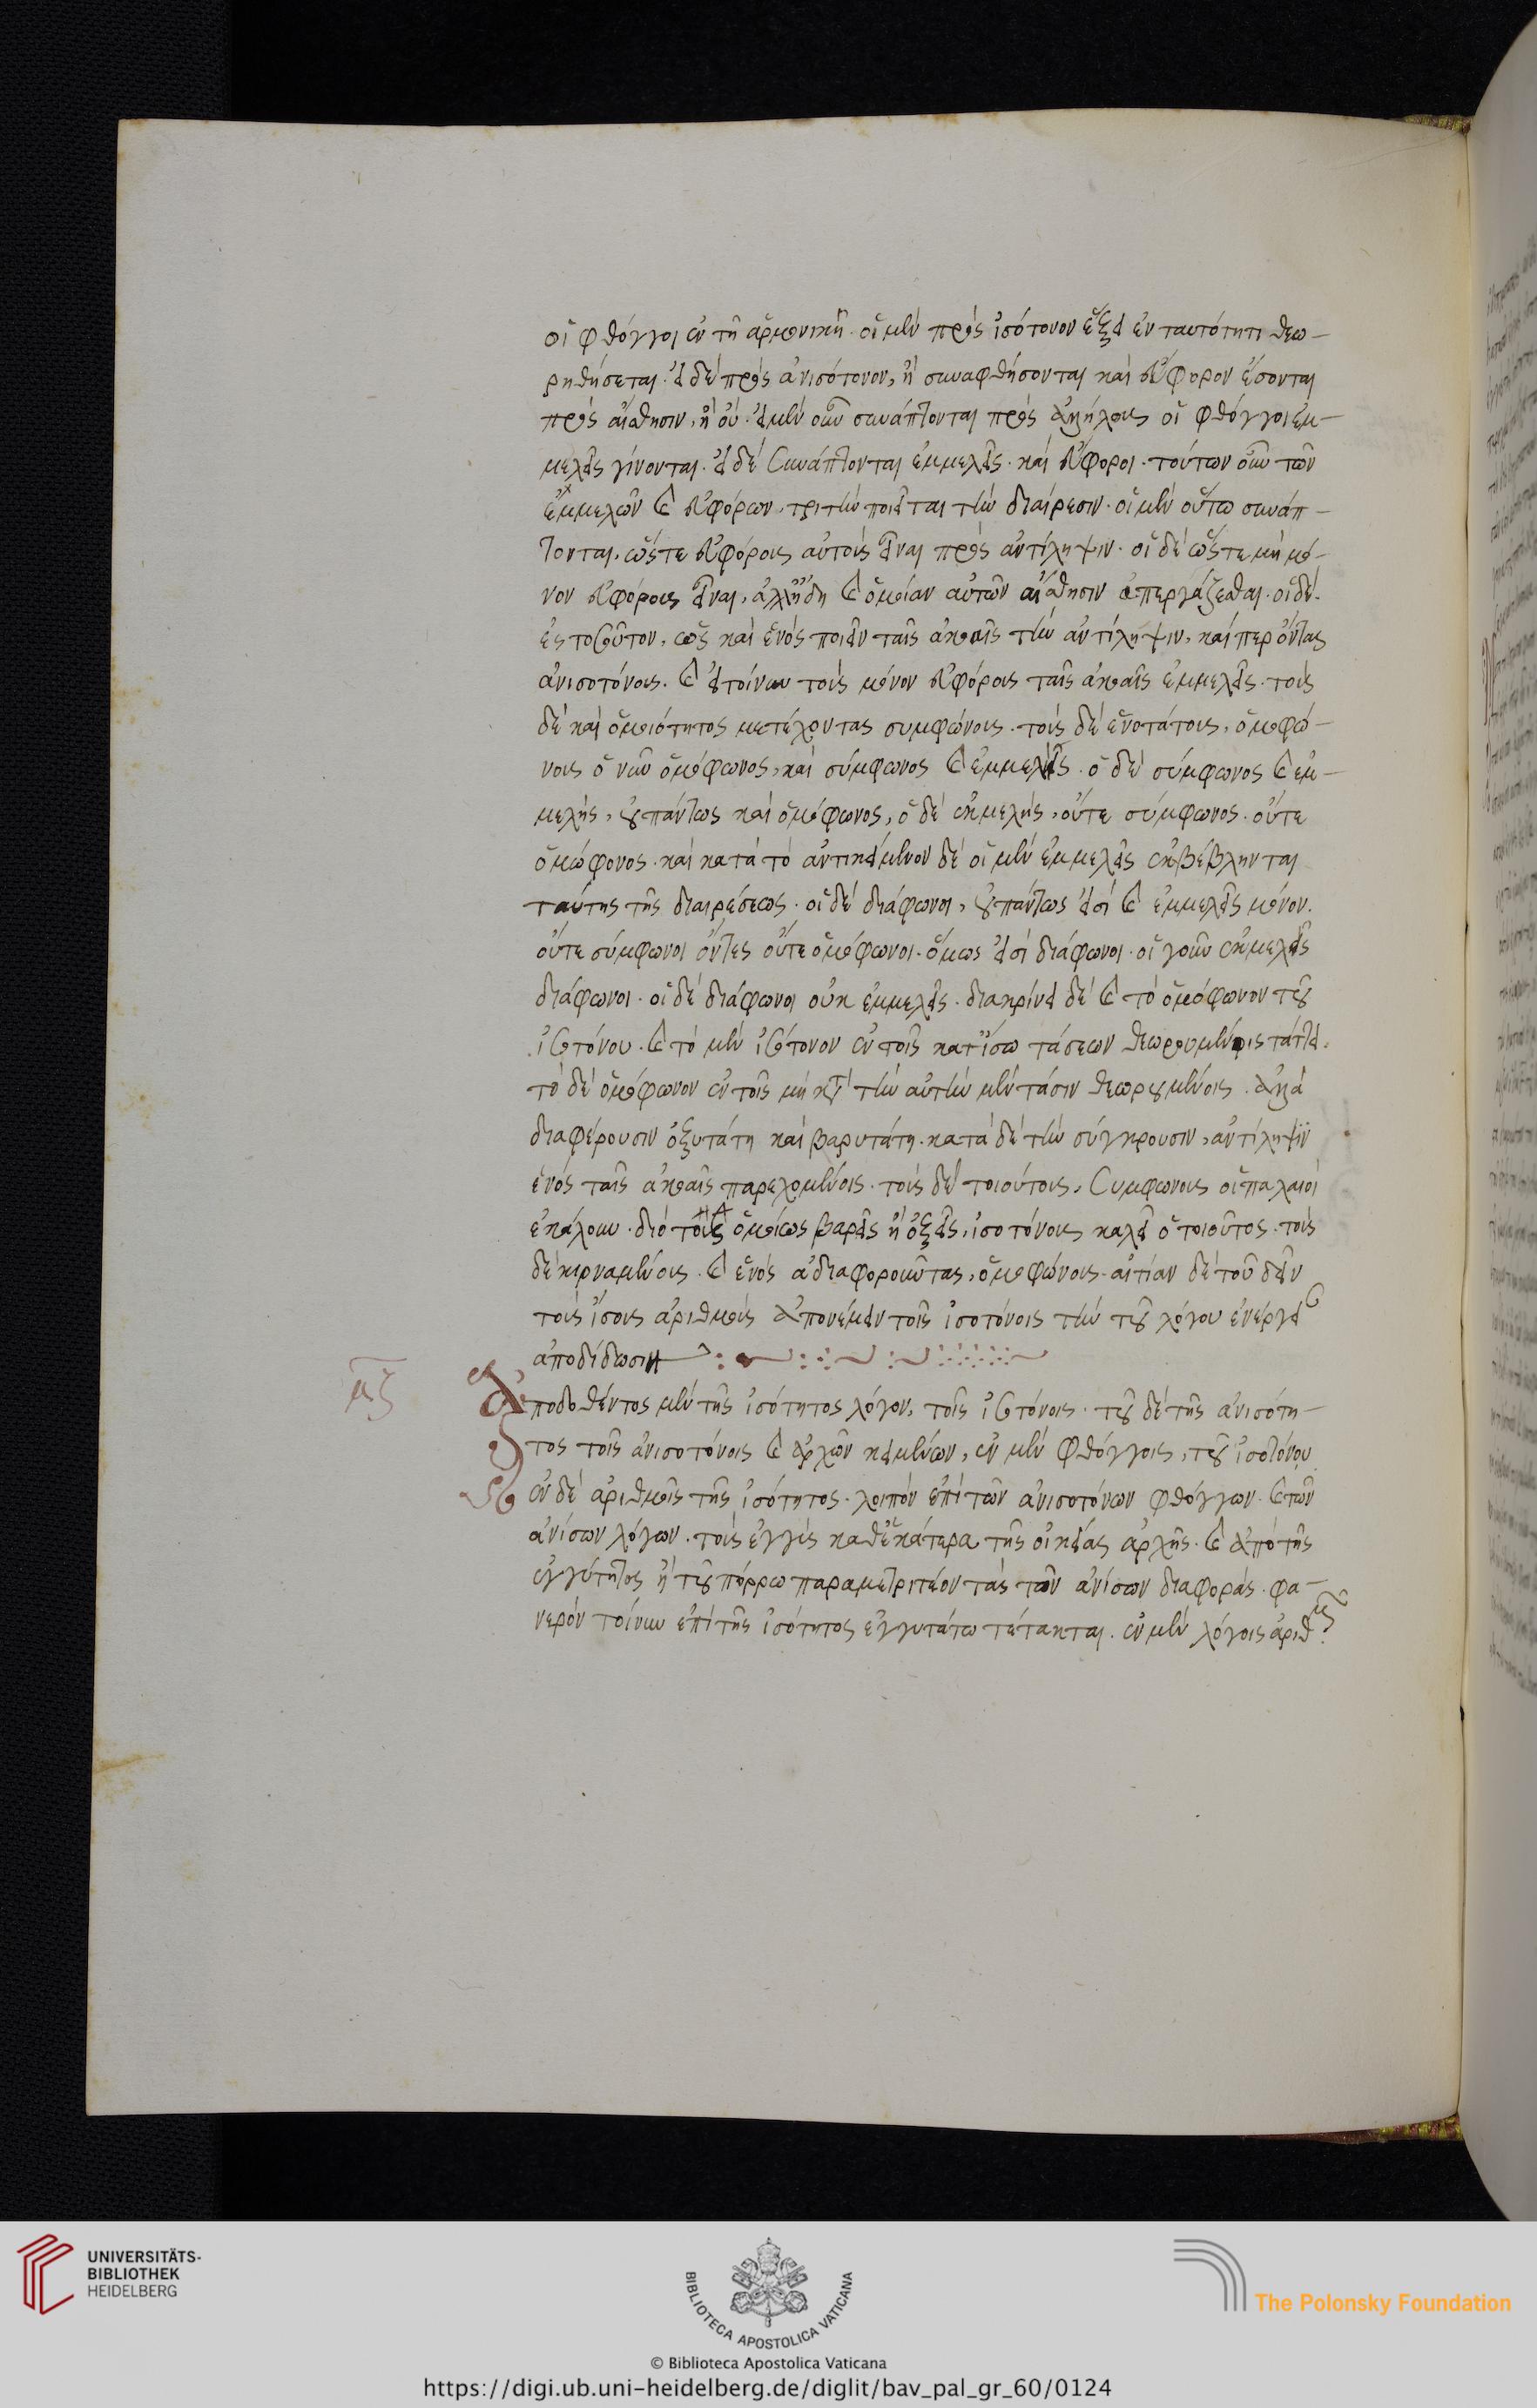 οἱ φθόγγοι ἐν τῆ ἁρμονικῆ. οἱ μὲν πρὸς ἰσότονον ἕξει ἐν ταυτότητι θεω-
ρηθήσεται. εἰ δὲ πρὸς ἀνισότονον, ἢ συναφθήσονται καὶ εὔφορον ἔσονται
πρὸς αἴσθησιν, ἢ οὔ. εἰ μὲν οὖν συνάπτονται πρὸς ἀλλήλους οἱ φθόγγοι ἐμ-
μελεῖς γίνονται. εἰ δὲ συνάπτονται ἐμμελεῖς. καὶ εὔφοροι. τούτων οὖν τῶν
ἐμμελῶν καὶ εὐφόρων, τριτὴν ποιεῖται τὴν διαίρεσιν. οἱ μὲν οὕτω συνάπ-
τονται, ὥστε εὐφόρους αὐτοὺς εἶναι πρὸς ἀντίληψιν. οἱ δὲ ὥστε μὴ μό-
νον εὐφόρους εἶναι, ἀλλ' ἤδη καὶ ὁμοίαν αὐτῶν αἴσθησιν ἀπεργάζεσθαι. οἱ δὲ.
ἐς τοσοῦτον, ὡς καὶ ἑνὸς ποιεῖν ταῖς ἀκοαῖς τὴν ἀντίληψιν, καίπερ ὄντας
ἀνισοτόνους. καὶ εἰ τοίνυν τοὺς μόνον εὐφόρους ταῖς ἀκοαῖς ἐμμελεῖς. τοὺς
δὲ καὶ ὁμοιότητος μετέχοντας συμφώνους. τοὺς δὲ ἑνοτάτους, ὁμοφώ-
νους ὁ νῦν ὁμόφωνος, καὶ σύμφωνος καὶ ἐμμελεῖς. ὁ δὲ σύμφωνος καὶ ἐμ-
μελὴς, οὐ πάντως καὶ ὁμόφωνος, ὁ δὲ ἐκμελὴς, οὔτε σύμφωνος. οὔτε
ὁμώφονος. καὶ κατὰ τὸ ἀντικείμενον δὲ οἱ μὲν ἐμμελεῖς ἐκβέβληνται
ταύτης τῆς διαιρέσεως. οἱ δὲ διάφωνοι, οὐ πάντως εἰσὶ καὶ ἐμμελεῖς μόνον.
οὔτε σύμφωνοι ὄντες οὔτε ὁμόφωνοι. ὅμως εἰσὶ διάφωνοι. οἱ γοῦν ἐκμελεῖς
διάφωνοι. οἱ δὲ διάφωνοι οὐκ ἐμμελεῖς. διακρίνει δὲ καὶ τὸ ὁμόφωνον τοῦ
ἰσοτόνου. καὶ τὸ μὲν ἰσότονον ἐν τοῖς κατ' ἴσω τάσεων θεωρουμένοις τάττει.
τὸ δὲ ὁμόφωνον ἐν τοῖς μὴ κατὰ τὴν αὐτὴν μὲν τάσιν θεωρουμένοις. ἀλλὰ
διαφέρουσιν ὀξυτάτη καὶ βαρυτάτη. κατὰ δὲ τὴν σύγκρουσιν, ἀντίληψιν
ἑνὸς ταῖς ἀκοαῖς παρεχομένοις. τοὺς δὲ τοιούτους, συμφώνους οἱ παλαιοὶ
ἐκάλουν. διὸ τοὺς ὁμοίως βαρεῖς ἢ ὀξεῖς, ἰσοτόνους καλεῖ ὁ τοιοῦτος. τοὺς
δὲ κιρναμένους. καὶ ἑνὸς ἀδιαφοροῦντας, ὁμοφώνους. αἰτίαν δὲ τοῦ δεῖν
τοὺς ἴσους ἀριθμοὺς ἀπονέμειν τοῖς ἰσοτόνοις τὴν τοῦ λόγου ἐνέργειαν
ἀποδίδωσιν
μζ
Ἀποδοθέντος μὲν τῆς ἰσότητος λόγον, τοῖς ἰσοτόνοις. τοῦ δὲ τῆς ἀνισότη-
τος τοῖς ἀνισοτόνοις καὶ ἀρχῶν κειμένων, ἐν μὲν φθόγγοις, τοῦ ἰσοτόνου
ἐν δὲ ἀριθμοῖς τῆς ἰσότητος. λοιπὸν ἐπὶ τῶν ἀνισοτόνων φθόγγων. καὶ τῶν
ἀνίσων λόγων. τοὺς ἐγγὺς καθ' ἑκάτερα τῆς οἰκείας ἀρχῆς. καὶ ἀπὸ τῆς
ἐγγύτητος ἢ τοῦ πόρρω παραμετριτέον τὰς τῶν ἀνίσων διαφοράς. φα-
νερὸν τοίνυν ἐπὶ τῆς ἰσότητος ἐγγυτάτω τέτακται. ἐν μὲν λόγοις ἀριθμοῖς
UNIVERSITÄTS-
BIBLIOTHEK
HEIDELBERG
BIBLIOTECA APOSTOLICA VATICANA
The Polonsky Foundation
© Biblioteca Apostolica Vaticana
https://digi.ub.uni-heidelberg.de/diglit/bav_pal_gr_60/0124